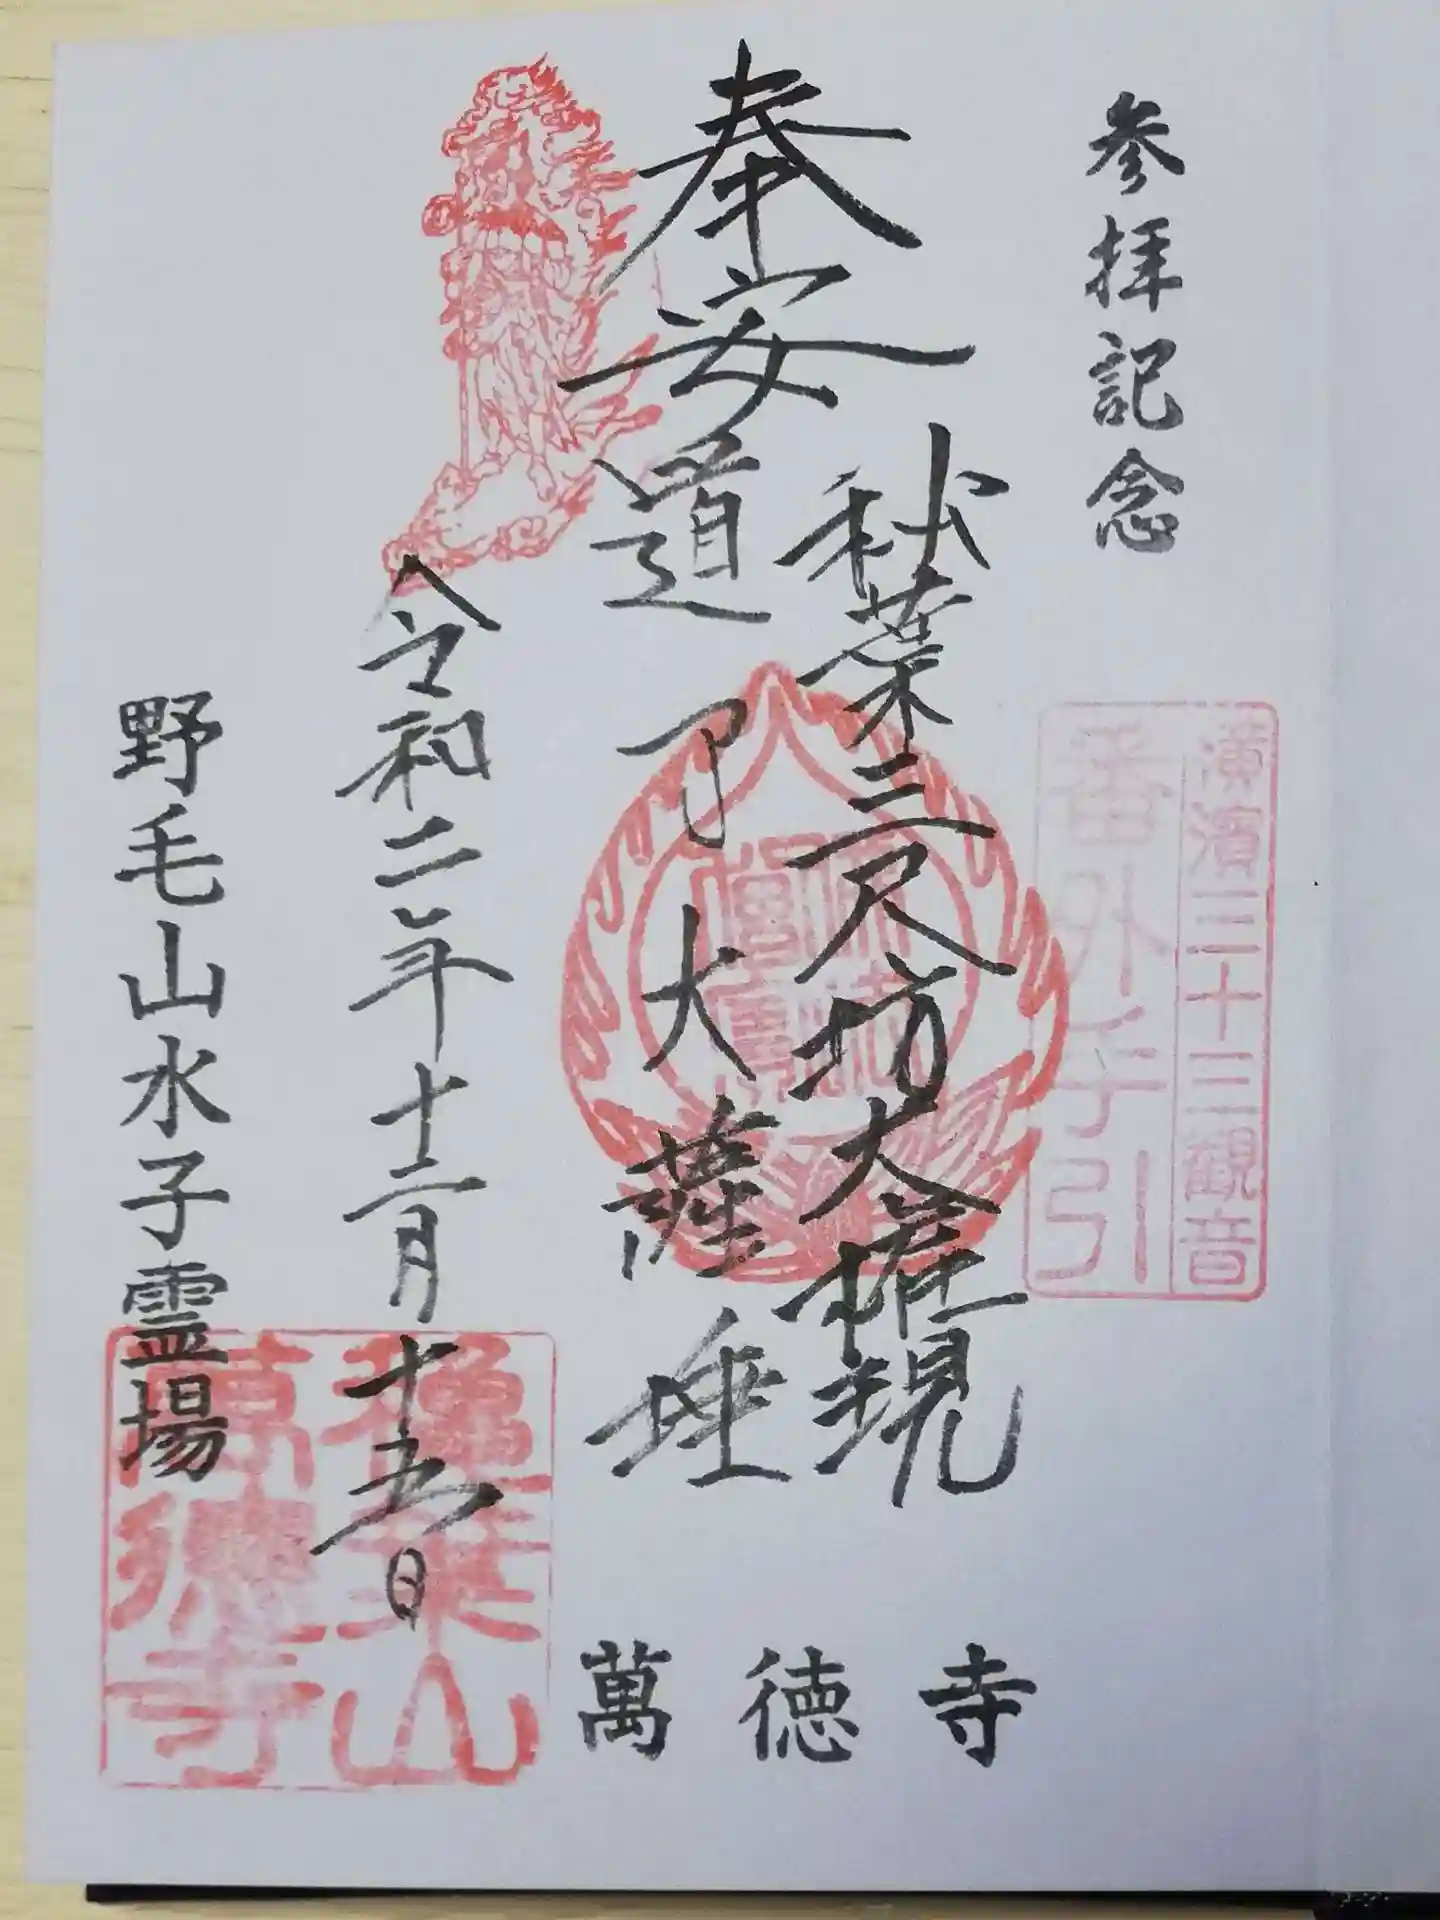 参拝記念
横濱三十三観音
番外手引
奉安
秋葉三尺坊大権現
道了大薩埵
令和二年十二月十五日
野毛山水子霊場
萬徳寺
秋葉山
萬徳寺